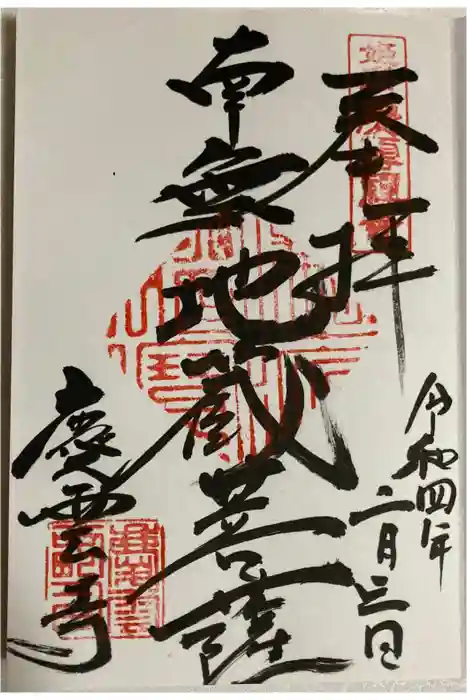 奉拝
令和四年
二月三日
南無地蔵菩薩
慶雲寺